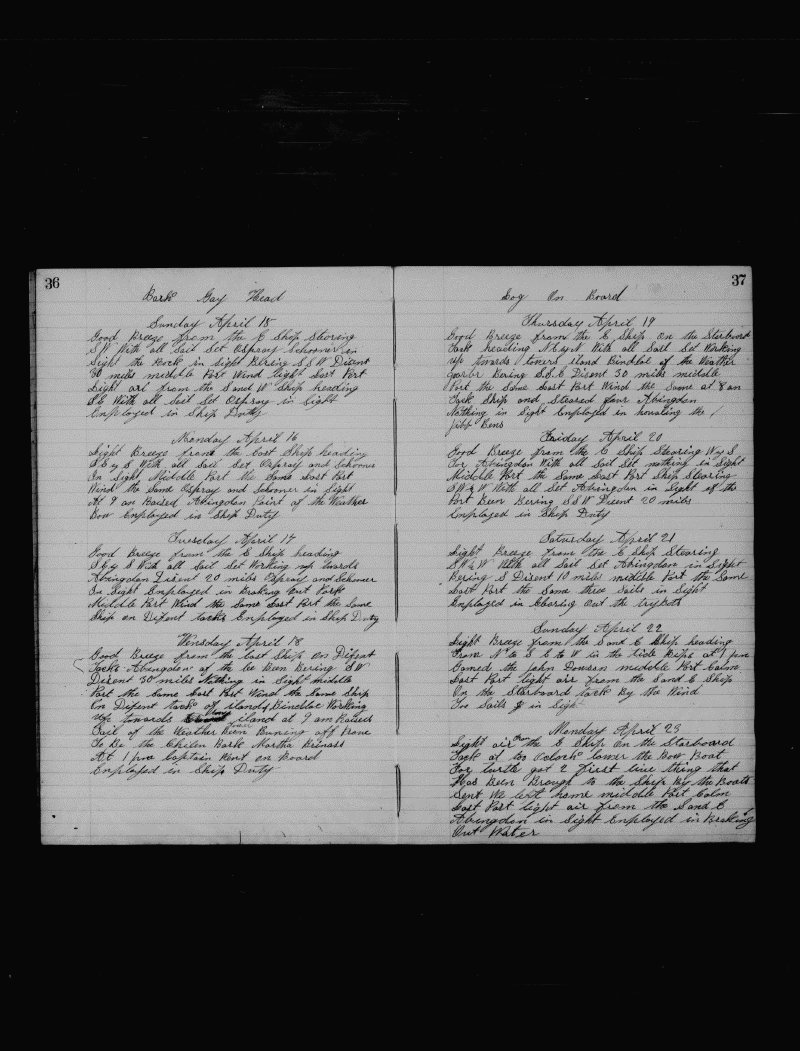 36
Bark Gay Head
Sunday April 15
Good Breeze from the E Ship Stearing
S W With all Sail Set Ospray Schooner in
Sight the Rock in Sight Bering S S W Disent
miles middle Part Wind light Last Part
Light air from the S and W Ship heading
S E With all Sail Set Ospray in Sight
Employed in Ship Duty
Monday April 16
Light Breeze from the East Ship heading
S E y S With all Sail Set Ospray and Schooner
In Sight Middle Part the Same Last Part
Wind the Same Ospray and Schooner in Sight
At 9 am Raised Abingdon Point of the Weather
Bow Employed in Ship Duty
Tuesday April 17
Good Breeze from the E Ship heading
S y S With all Sail Set Working up towards
Abingdon Disent 20 miles Ospray and Schooner
In Sight Employed in Braking Out Pork
Middle Part Wind the Same Last Part the Same
Ship on Difent tacks Employed in Ship Duty
Wensday April 18
Good Breeze from the East Ship On Difent
Tacks Abingdon of the be Been Bering S W
Disent 30 miles Nothing in Sight middle
Part the Same Last Part Wind the Same Ship
On Difent tack of islands Bindloe Working
Up towards iland at 9 am Raised
Sail of the Weather Been Runing off Prove
To Be the Bark Martha
At 1 pm Captain Went on Board
Employed in Ship Duty
37
Log On Board
Thursday April 19
Good Breeze from the E Ship On the Starboard
Tack heading N E y N With all Sail Set Working
Up towards towers iland Bindloe of the Weather
Bering S S E Disent 30 miles middle
Part the Same Last Part Wind the Same at 8 am
Tack Ship and Steared four Abingdon
Nothing in Sight Employed in the
Jibb
Friday April 20
Good Breeze from the E Ship Stearing W y S
For Abingdon With all Sail Set nothing in Sight
Middle Part the Same Last Part Ship Stearing
S W & W With all Set Abingdon in Sight of the
Port Been Bering S W Disent 20 miles
Employed in Ship Duty
Saturday April 21
Light Breeze from the E Ship Stearing
S W & W With all Sail Set Abingdon in Sight
Bering S Disent 10 miles middle Part the Same
Last Part the Same three Sails in Sight
Employed in Out the
Sunday April 22
Light Breeze from the S and E Ship heading
From N to S E to W in the tide Rips at 1 pm
Gamed the John Dowson middle Part Calm
Last Part light air from the S and E Ship
On the Starboard tack By the Wind
Two Sails in Sight
Monday April 23
Light air From the E Ship On the Starboard
Tack at 10 oclock lower the Bow Boat
For turtle got 2 first live thing that
Has Been Brough to the Ship By the Boats
Sent We left home middle Part Calm
Last Part light air from the S and E
Abingdon in Sight Employed in Braking
Out Water